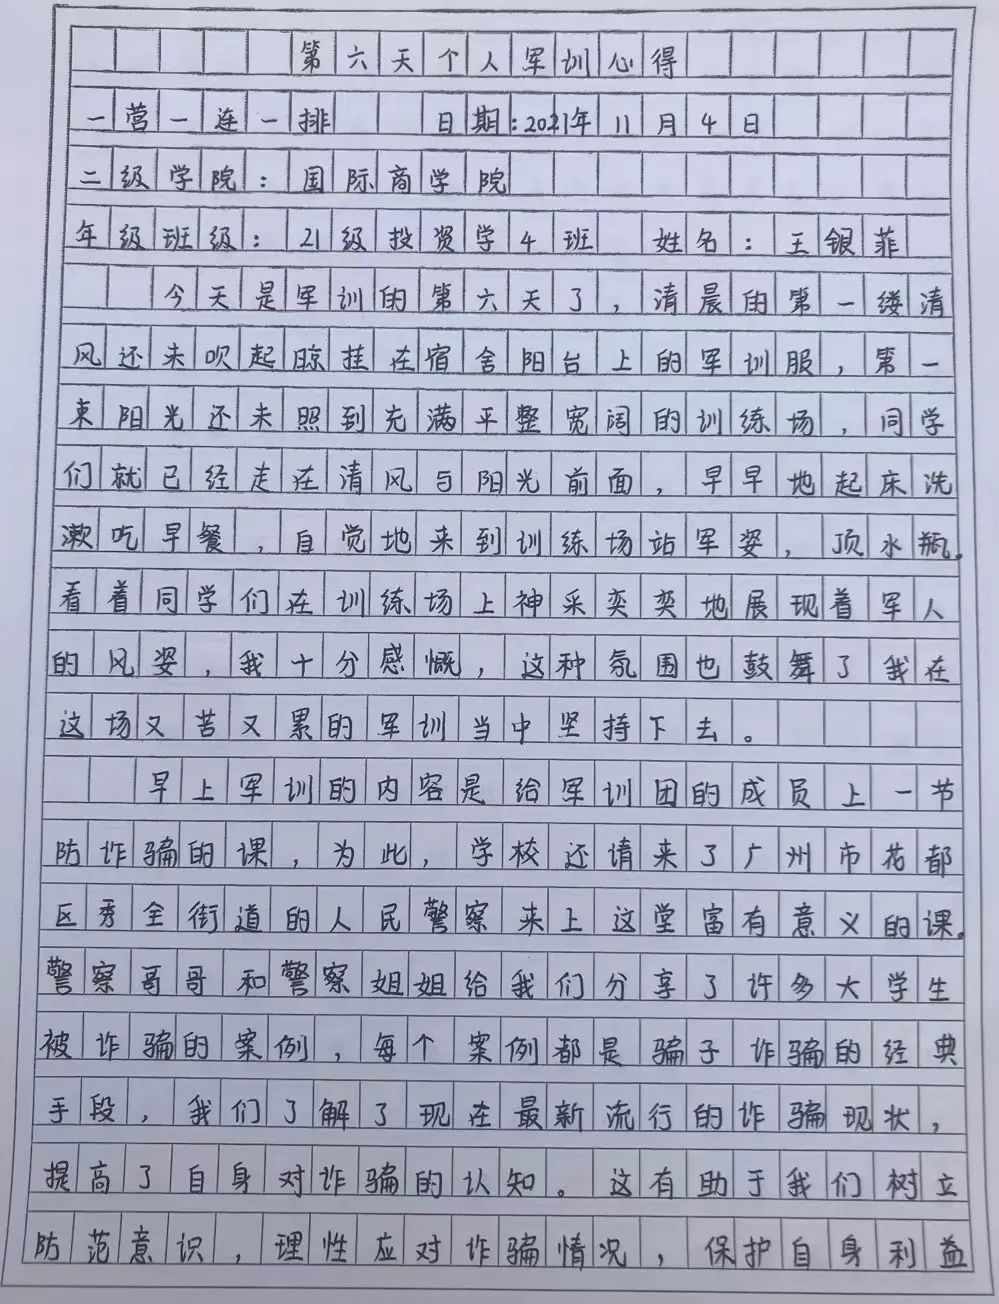 第六天个人军训心得
一营一连一排 日期:2021年11月4日
二级学院:国际商学院
年级班级:21级投资学4班 姓名:王银菲
今天是军训的第六天了,清晨的第一缕清
风还未吹起晾挂在宿舍阳台上的军训服,第一
束阳光还未照到充满平整宽阔的训练场,同学
们就已经走在清风与阳光前面,早早地起床洗
漱吃早餐,自觉地来到训练场站军姿,顶水瓶。
看着同学们在训练场上神采奕奕地展现着军人
的风姿,我十分感慨,这种氛围也鼓舞了我在
这场又苦又累的军训当中坚持下去。
早上军训的内容是给军训团的成员上一节
防诈骗的课,为此,学校还请来了广州市花都
区秀全街道的人民警察来上这堂富有意义的课。
警察哥哥和警察姐姐给我们分享了许多大学生
被诈骗的案例,每个案例都是骗子诈骗的经典
手段,我们了解了现在最新流行的诈骗现状,
提高了自身对诈骗的认知。这有助于我们树立
防范意识,理性应对诈骗情况,保护自身利益